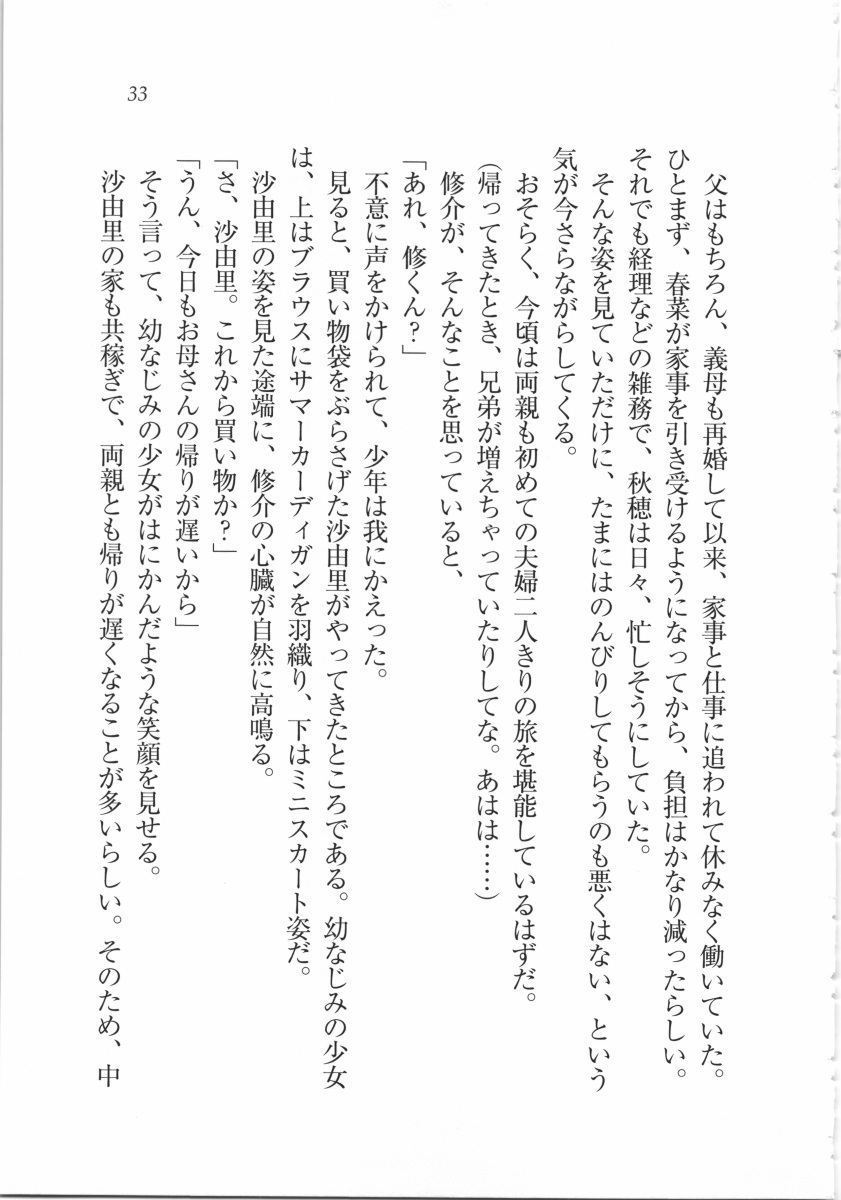 33
父はもちろん、義母も再婚して以来、家事と仕事に追われて休みなく働いていた。
ひとまず、春菜が家事を引き受けるようになってから、負担はかなり減ったらしい。
それでも経理などの雑務で、秋穂は日々、忙しそうにしていた。
そんな姿を見ていただけに、たまにはのんびりしてもらうのも悪くはない、という
気が今さらながらしてくる。
おそらく、今頃は両親も初めての夫婦二人きりの旅を堪能しているはずだ。
(帰ってきたとき、兄弟が増えちゃっていたりしてな。あはは……)
修介が、そんなことを思っていると、
「あれ、修くん?」
不意に声をかけられて、少年は我にかえった。
見ると、買い物袋をぶらさげた沙由里がやってきたところである。幼なじみの少女
は、上はブラウスにサマーカーディガンを羽織り、下はミニスカート姿だ。
沙由里の姿を見た途端に、修介の心臓が自然に高鳴る。
「さ、沙由里。これから買い物か?」
「うん、今日もお母さんの帰りが遅いから」
そう言って、幼なじみの少女がはにかんだような笑顔を見せる。
沙由里の家も共稼ぎで、両親とも帰りが遅くなることが多いらしい。そのため、中